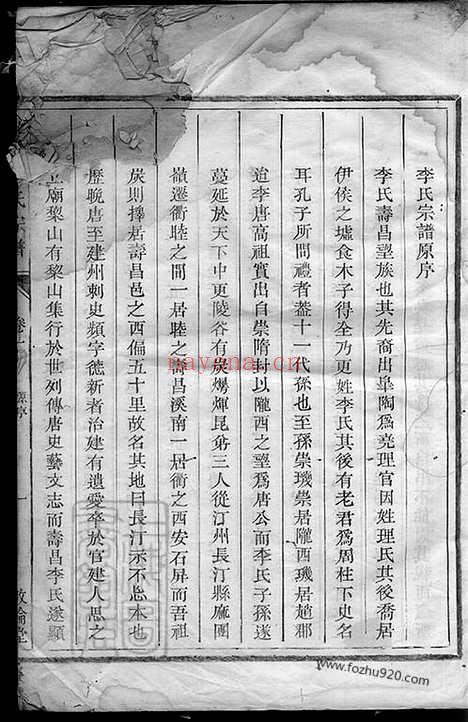 李氏宗譜原序
李氏壽昌望族也其先裔出皐陶爲堯理官因姓理氏其後裔居
伊侯之墟食木子得全乃更姓李氏其後有老君爲周柱下史名
耳孔子所問禮者葢十一代孫也至孫崇璣崇居隴西璣居趙郡
迨李唐高祖實出自崇隋封以隴西之望爲唐公而李氏子孫遂
蔓延於天下中更陵谷有炭爆煇昆弟三人從汀州長汀縣
嶺遷衢睦之間一居睦之壽昌溪南一居衢之西安石屏而吾祖
炭則擇居壽昌邑之西偏五十里故名其地曰長汀示不忘本也
歷晚唐至建州刺史頻字德新者治建有遺愛卒於官建人思之
立廟黎山有黎山集行於世列傳唐史藝文志而壽昌李氏遂顯
氏宗譜
卷一
原序
一
敦倫堂
nayona.cn
www.fozhu920.com